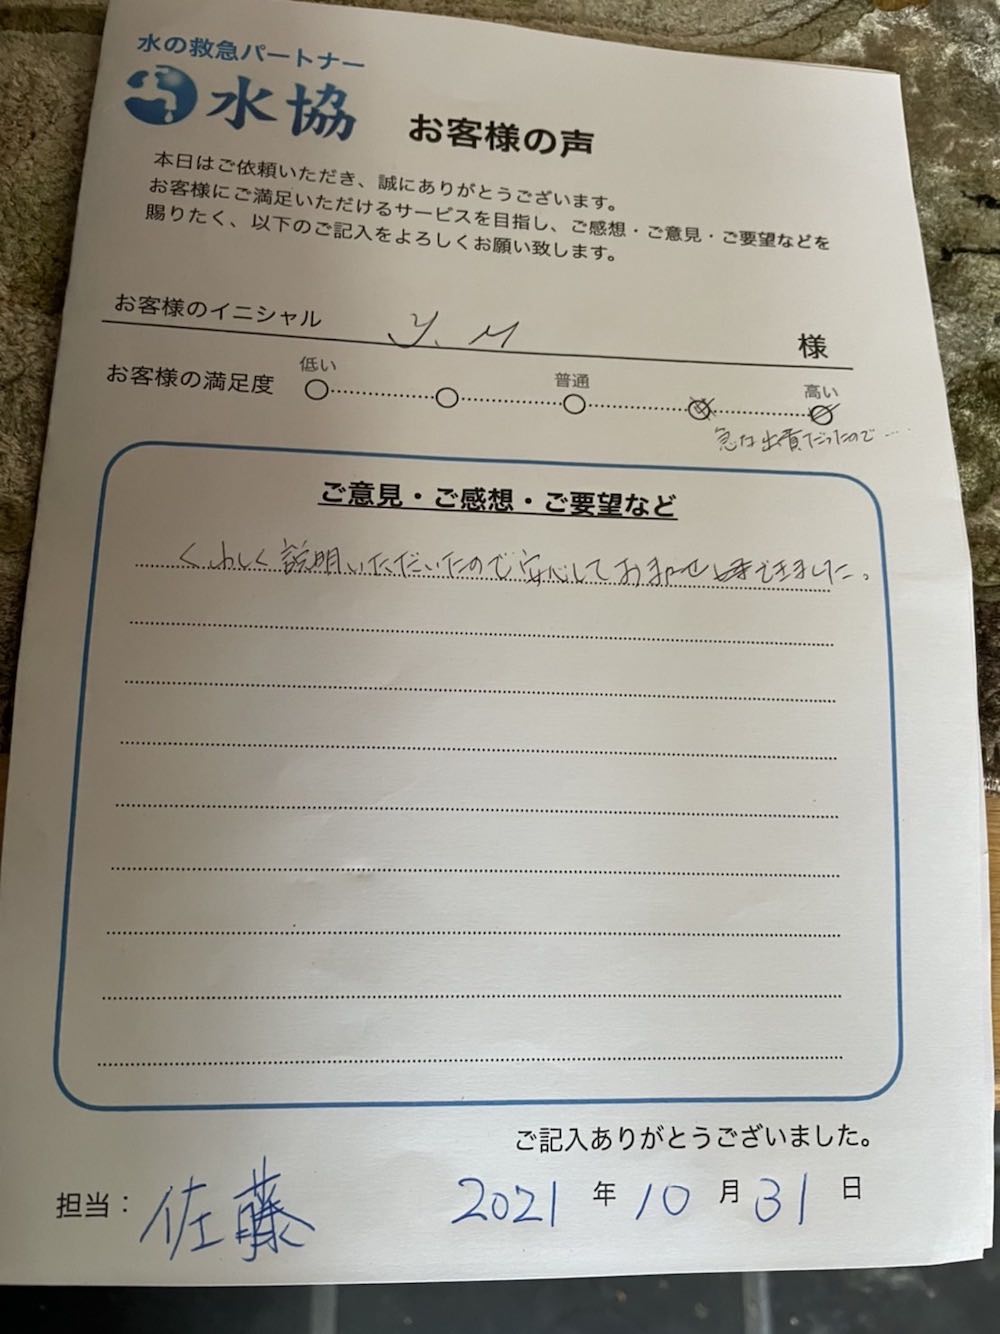 水の救急パートナー
水協
お客様の声
本日はご依頼いただき、誠にありがとうございます。
お客様にご満足いただけるサービスを目指し、ご感想・ご意見・ご要望などを
賜りたく、以下のご記入をよろしくお願い致します。
お客様のイニシャル Y.M 様
お客様の満足度 低い 普通 高い
急な出費だったので……
ご意見・ご感想・ご要望など
くわしく説明いただいたので安心しておまかせできました。
ご記入ありがとうございました。
担当：佐藤 2021年10月31日